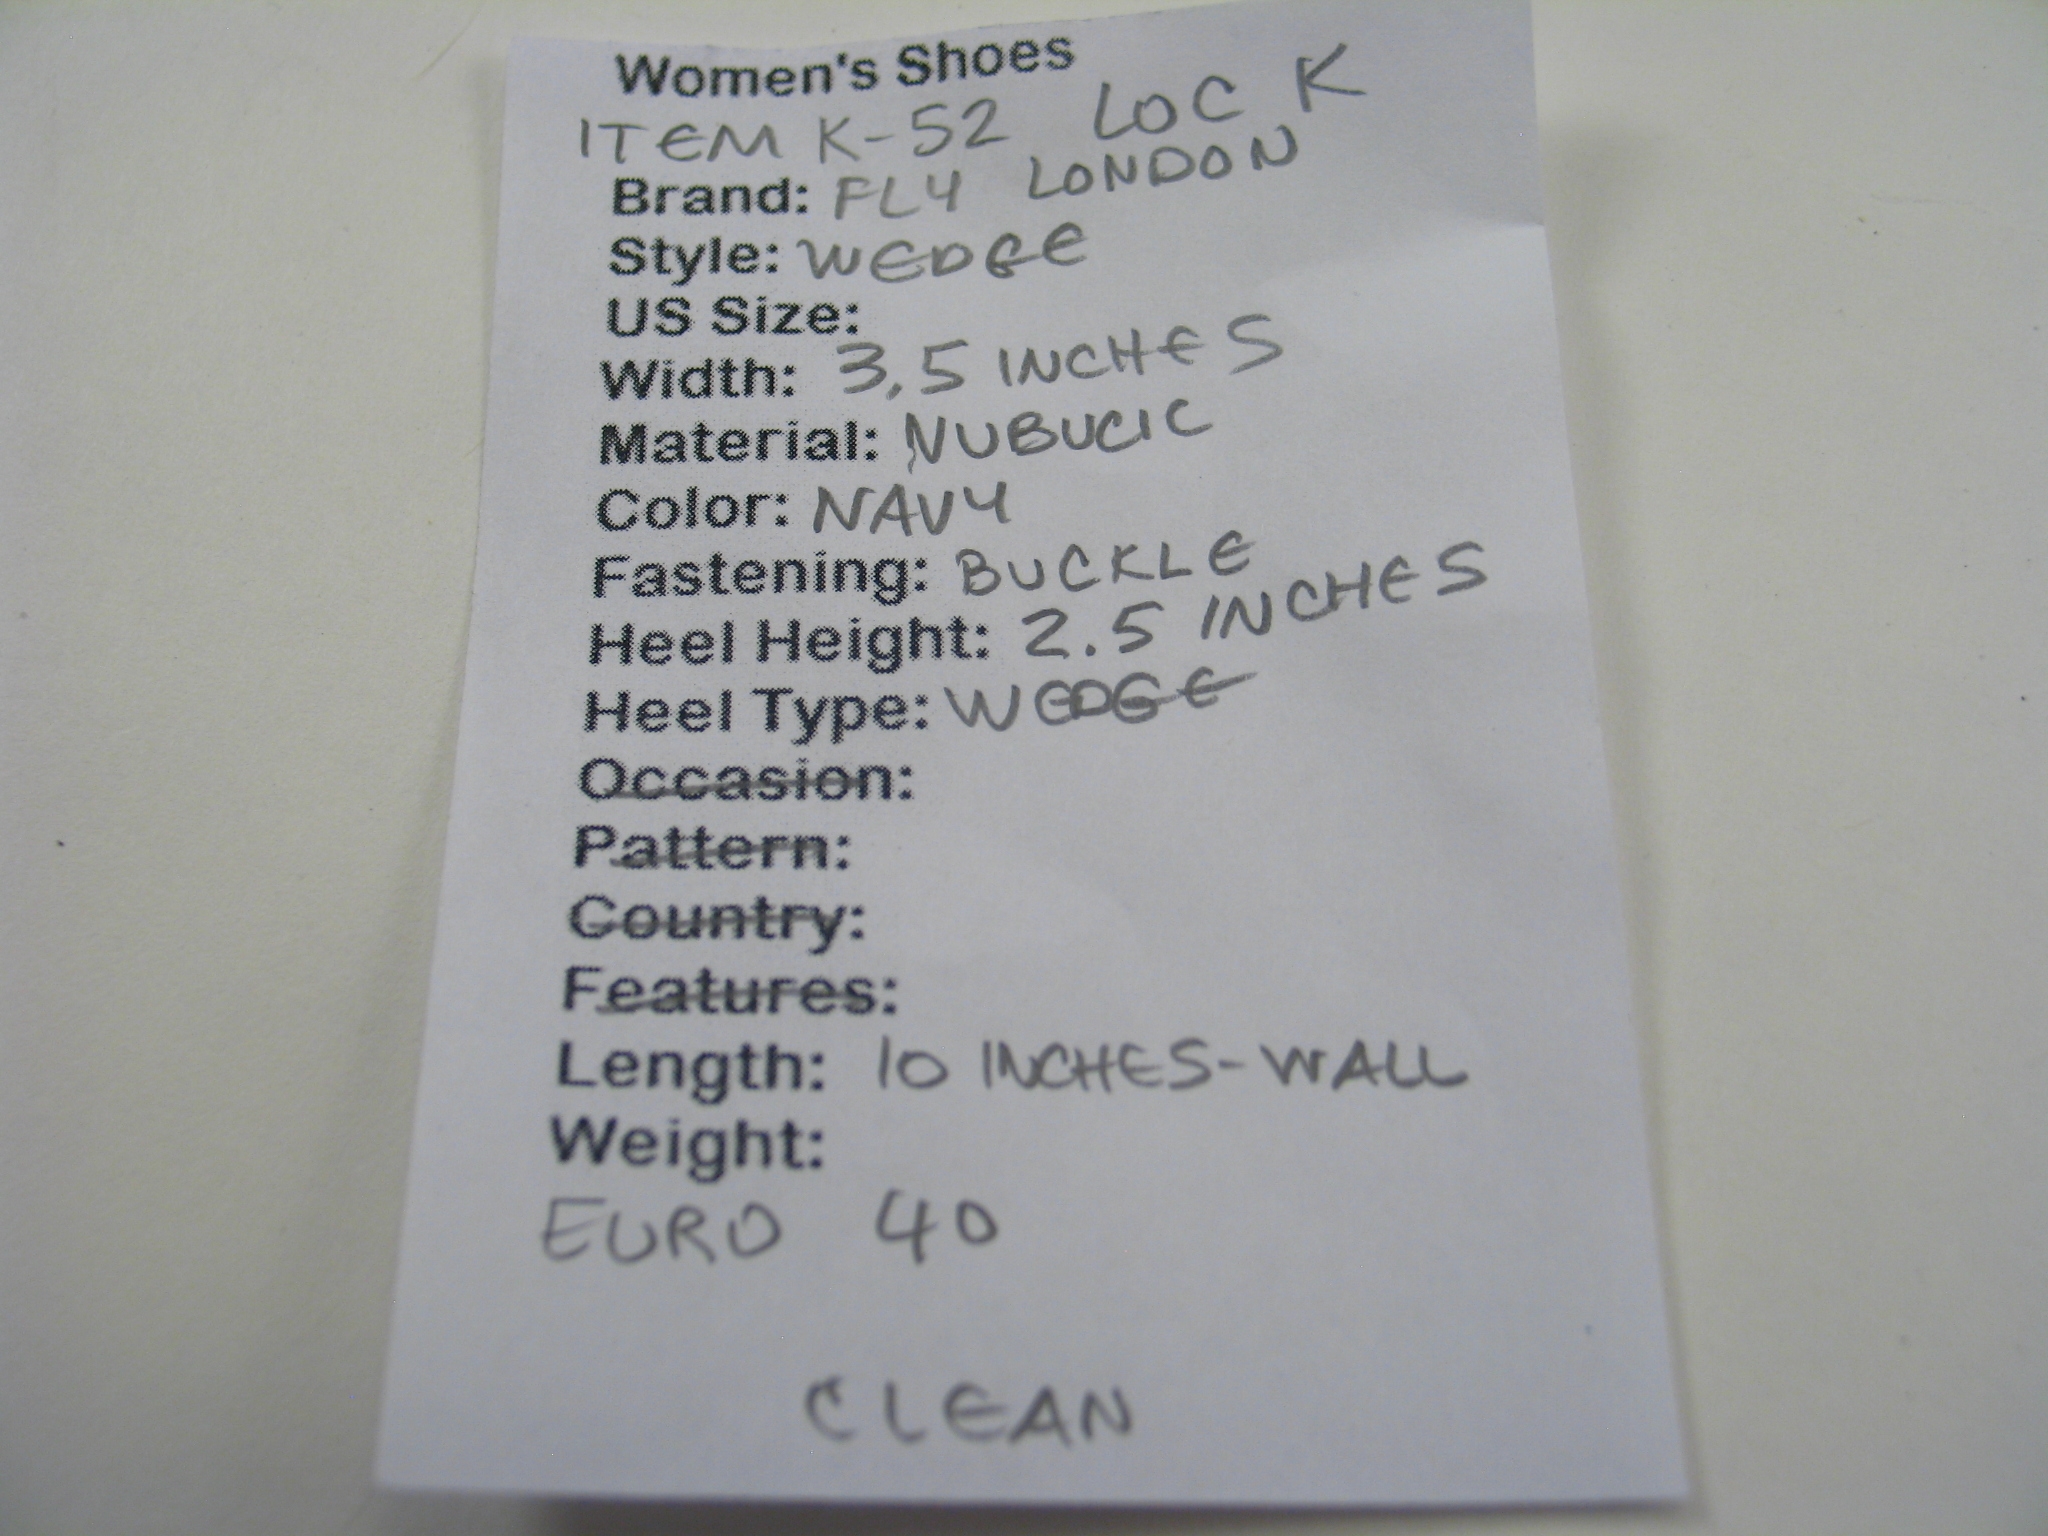 Women's Shoes
ITEM K-52 LOC K
Brand: FLY LONDON
Style: WEDGE
US Size:
Width: 3.5 INCHES
Material: NUBUCK
Color: NAVY
Fastening: BUCKLE
Heel Height: 2.5 INCHES
Heel Type: WEDGE
Occasion:
Pattern:
Country:
Features:
Length: 10 INCHES-WALL
Weight:
EURO 40
CLEAN